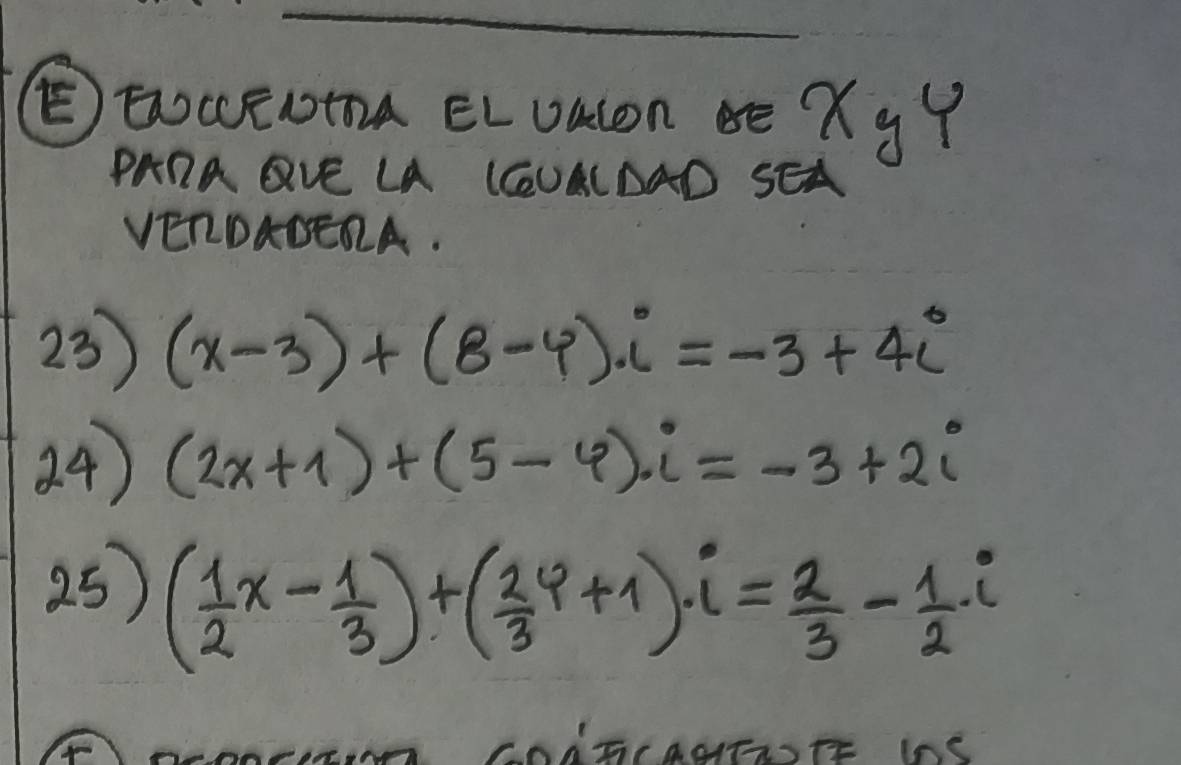 E) ENCUENTRA EL VALOR DE X y Y
PARA QUE LA IGUALDAD SEA
VERDADERA.
23) (x-3)+(8-y).i=-3+4i
24) (2x+1)+(5-y).i=-3+2i
25) (1/2 x - 1/3)+(2/3 y+1).i = 2/3 - 1/2 .i
GRÁFICAMENTE LOS